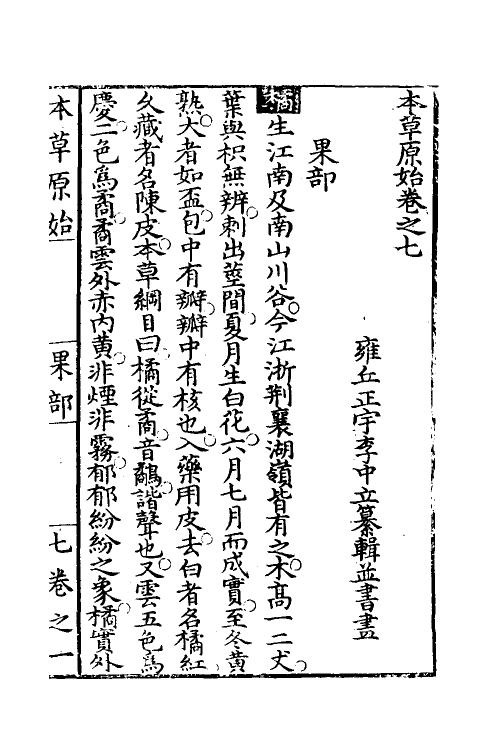 本草原始卷之七
雍丘正宇李中立纂輯並書畫
果部
橘生江南及南山川谷今江浙荆襄湖嶺皆有之木髙一二丈
葉與枳無辨刺出莖間夏月生白花六月七月而成實至冬黄
熟大者如盃包中有瓣瓣中有核也入藥用皮去白者名橘紅
久藏者名陳皮本草綱目曰橘從矞音鷸諧聲也又雲五色爲
慶二色爲矞矞雲外赤内黄非煙非霧郁郁紛紛之象橘實外
本草原始
果部
七卷之一